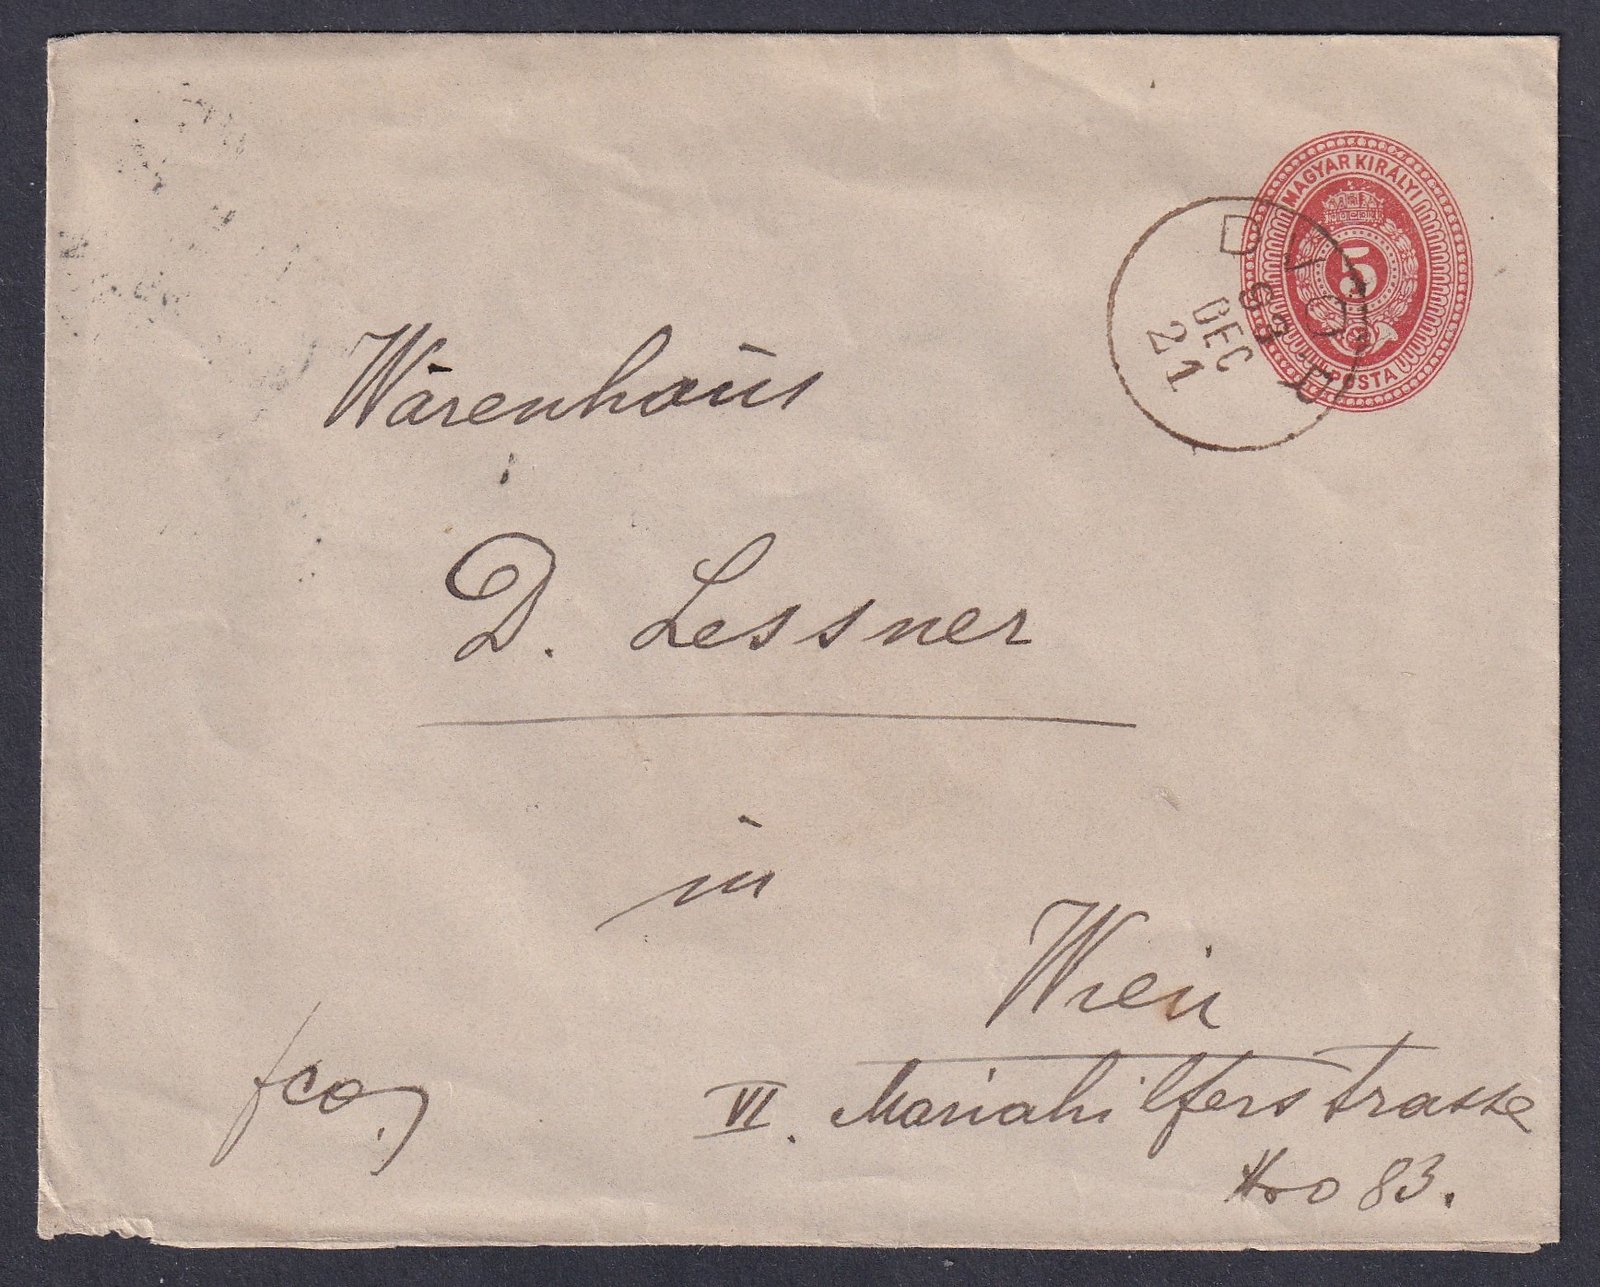 MAGYAR KIRÁLYI
5
POSTA
DVOR
99
DEC
21
Warenhaus
D. Lessner
in
Wien
fco.
VI. Mariahilferstrasse
Nro 83.